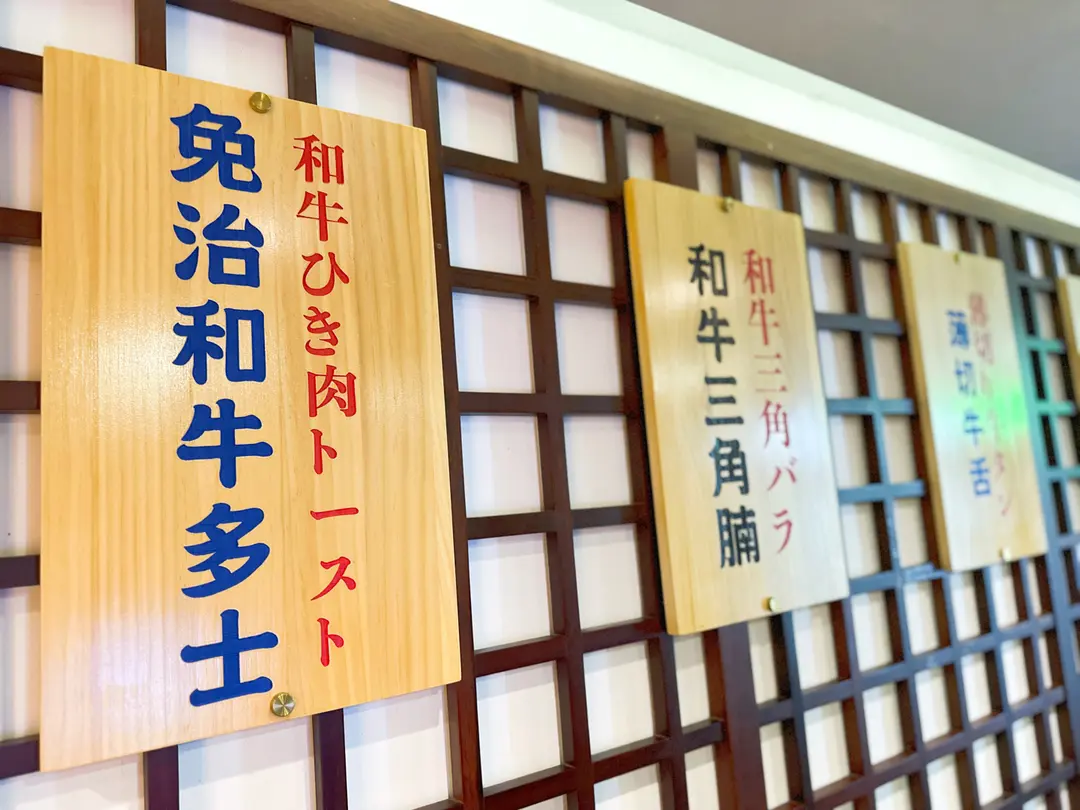 和牛ひき肉トースト
免治和牛多士
和牛三角バラ
和牛三角腩
薄切牛舌